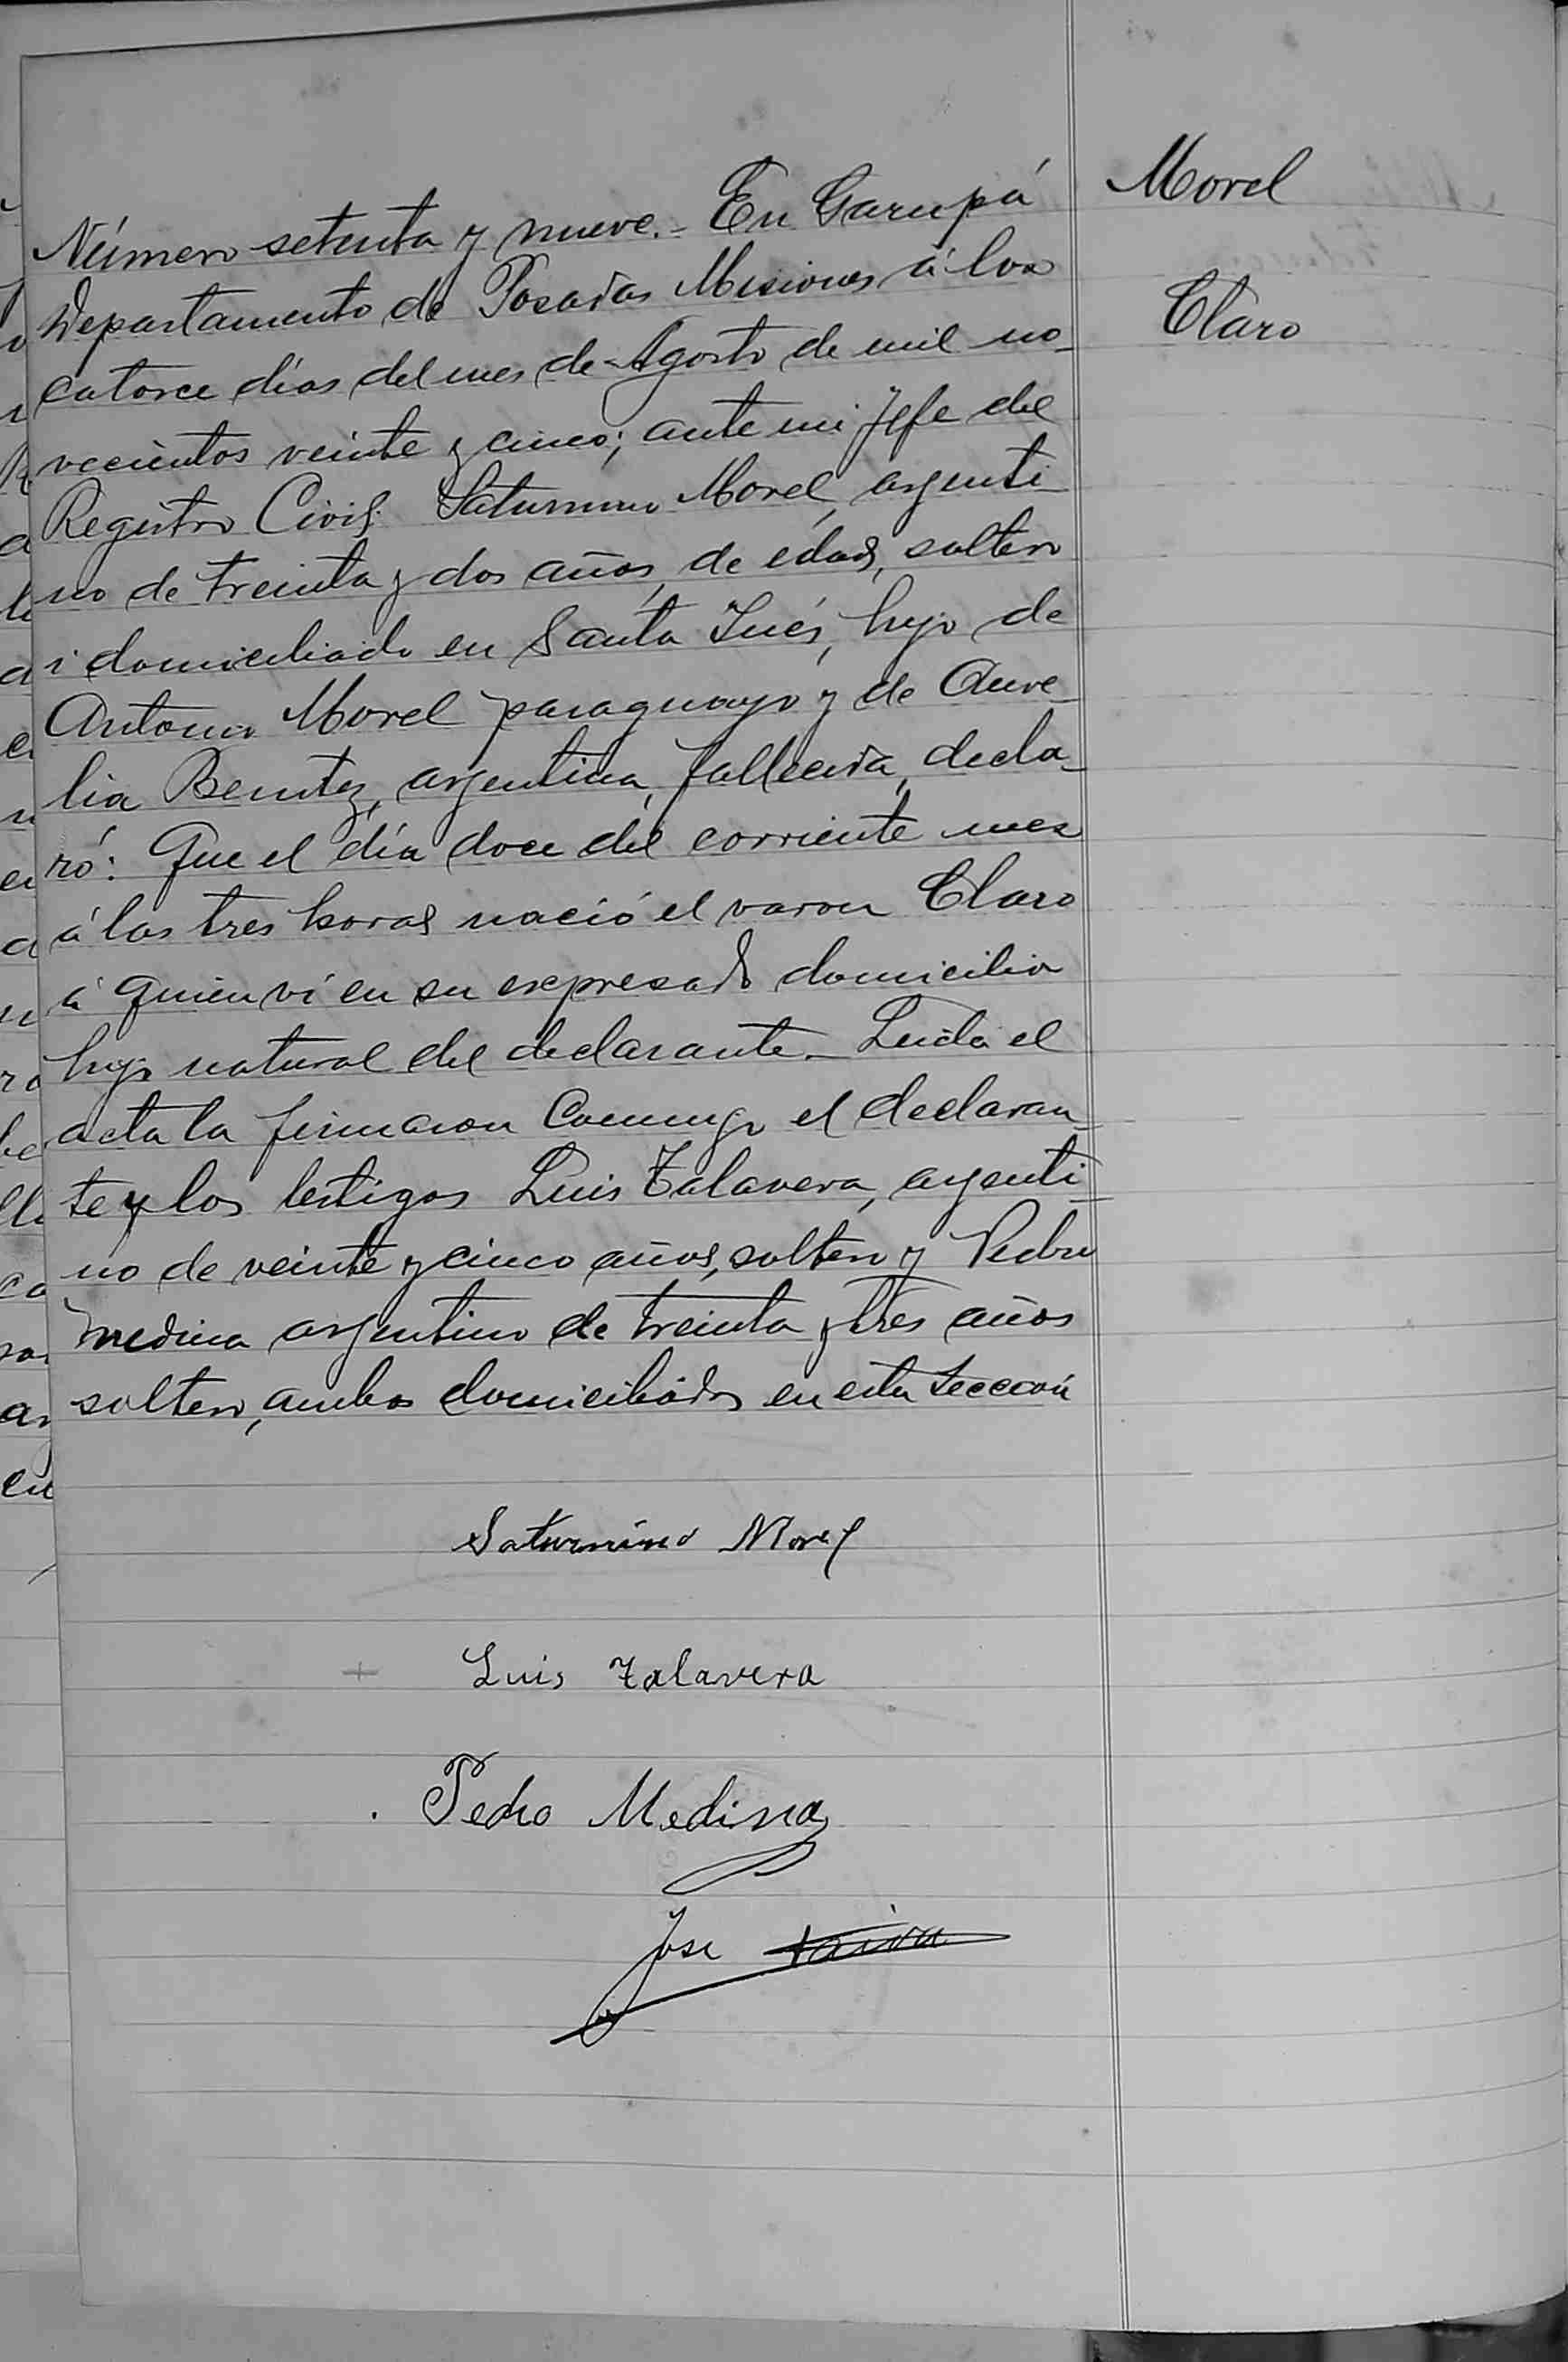 Morel
Claro
Número setenta y nueve.- En Garupá
Departamento de Posadas Misiones á los
catorce días del mes de Agosto de mil no-
vecientos veinte y cinco; ante mi Jefe del
Registro Civil: Saturnino Morel, argenti-
no de treinta y dos años, de edad, soltero
i domiciliado en Santa Inés, hijo de
Antonio Morel paraguayo y de Aure-
lia Benitez, argentina, fallecida, decla-
ró: Que el día doce del corriente mes
á las tres horas nació el varon Claro
á quien ví en su expresado domicilio
hijo natural del declarante.- Leída el
acta la firmaron conmigo el declaran-
te y los testigos Luis Talavera, argenti-
no de veinte y cinco años, soltero y Pedro
Medina argentino de treinta y tres años
soltero, ambos domiciliados en esta sección
Saturnino Morel
Luis Talavera
Pedro Medina
Jose